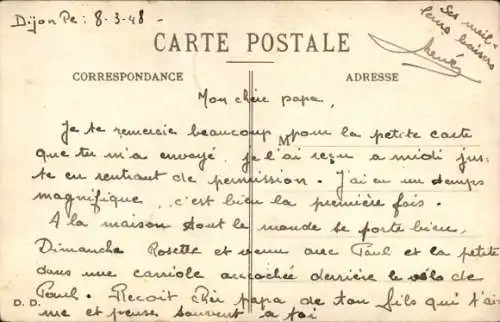 Dijon le : 8-3-48 -
Ses meil-
leurs baisers
René
CARTE POSTALE
CORRESPONDANCE
ADRESSE
Mon chèr papa,
Je te remercie beaucoup pour la petite carte
M
que tu m'a envoyé, je l'ai reçu a midi jus-
te en rentrant de permission. J'ai eu un temps
magnifique, c'est bien la première fois.
A la maison tout le monde se porte bien,
Dimanche Rosette et venu avec Paul et la petite
dans une carriole accrochée derrière le vélo de
Paul. Recoit chèr papa de ton fils qui t'ai-
D.D.
me et pense souvent a toi